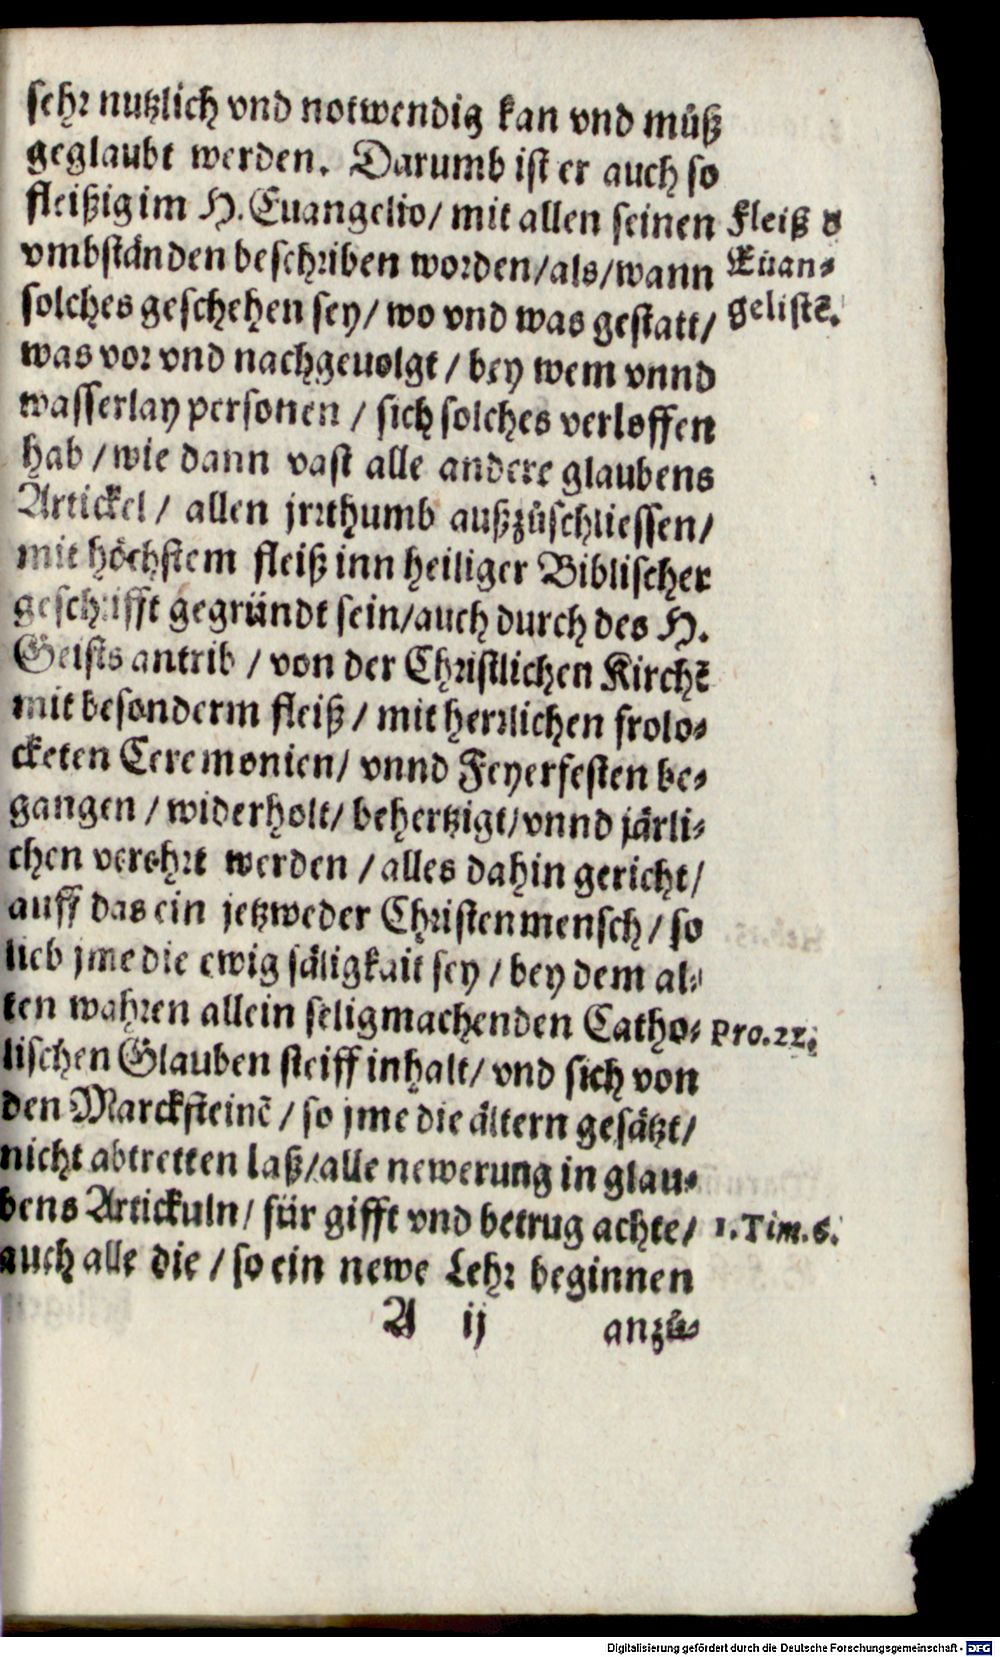 sehr nutzlich vnd notwendig kan vnd müß
geglaubt werden. Darumb ist er auch so
fleißig im H. Euangelio/ mit allen seinen
vmbständen beschriben worden/als/wann
solches geschehen sey/ wo vnd was gestatt/
was vor vnd nachgeuolgt / bey wem vnnd
wasserlay personen / sich solches verloffen
hab / wie dann vast alle andere glaubens
Artickel / allen jrrthumb außzůschliessen/
mit höchstem fleiß inn heiliger Biblischer
geschrifft gegründt sein/auch durch des H.
Geists antrib / von der Christlichen Kirchē
mit besonderm fleiß / mit herrlichen frolo-
cketen Ceremonien/ vnnd Feyerfesten be-
gangen / widerholt/ behertzigt/vnnd järli-
chen verehrt werden / alles dahin gericht/
auff das ein jetzweder Christenmensch / so
lieb jme die ewig säligkait sey / bey dem al-
ten wahren allein seligmachenden Catho-
lischen Glauben steiff inhalt/ vnd sich von
den Marcksteinē / so jme die ältern gesätzt/
nicht abtretten laß/alle newerung in glau-
bens Artickuln/ für gifft vnd betrug achte/
auch alle die / so ein newe Lehr beginnen
A ij anzů-
Fleiß d
Euan-
gelistē.
Pro.22.
1.Tim.6.
Digitalisierung gefördert durch die Deutsche Forschungsgemeinschaft - DFG